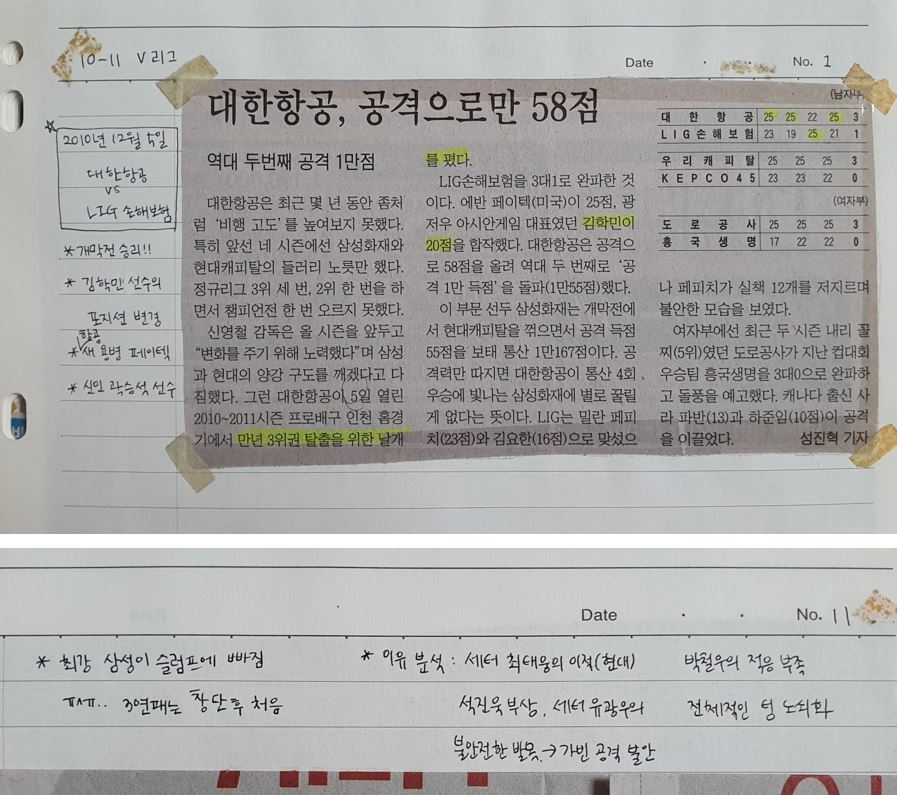 10-11 V리그
Date No. 1
2010년 12월 5일
대한항공
vs
LIG 손해보험
* 개막전 승리!!
* 김학민 선수의
포지션 변경
항공
* 새 용병 페이텍
* 신인 곽승석 선수
대한항공, 공격으로만 58점
역대 두번째 공격 1만점
대한항공은 최근 몇 년 동안 좀처
럼 ‘비행 고도’를 높여보지 못했다.
특히 앞선 네 시즌에선 삼성화재와
현대캐피탈의 들러리 노릇만 했다.
정규리그 3위 세 번, 2위 한 번을 하
면서 챔피언전 한 번 오르지 못했다.
신영철 감독은 올 시즌을 앞두고
“변화를 주기 위해 노력했다”며 삼성
과 현대의 양강 구도를 깨겠다고 다
짐했다. 그런 대한항공이 5일 열린
2010~2011시즌 프로배구 인천 홈경
기에서 만년 3위권 탈출을 위한 날개
를 폈다.
LIG손해보험을 3대1로 완파한 것
이다. 에반 페이텍(미국)이 25점, 광
저우 아시안게임 대표였던 김학민이
20점을 합작했다. 대한항공은 공격으
로 58점을 올려 역대 두 번째로 ‘공
격 1만 득점’을 돌파(1만55점)했다.
이 부문 선두 삼성화재는 개막전에
서 현대캐피탈을 꺾으면서 공격 득점
55점을 보태 통산 1만167점이다. 공
격력만 따지면 대한항공이 통산 4회
우승에 빛나는 삼성화재에 별로 꿀릴
게 없다는 뜻이다. LIG는 밀란 페피
치(23점)와 김요한(16점)으로 맞섰으
(남자부)
대한항공 25 25 22 25 3
LIG손해보험 23 19 25 21 1
우리캐피탈 25 25 25 3
KEPCO45 23 23 22 0
(여자부)
도로공사 25 25 25 3
흥국생명 17 22 22 0
나 페피치가 실책 12개를 저지르며
불안한 모습을 보였다.
여자부에선 최근 두 시즌 내리 꼴
찌(5위)였던 도로공사가 지난 컵대회
우승팀 흥국생명을 3대0으로 완파하
고 돌풍을 예고했다. 캐나다 출신 사
라 파반(13)과 하준임(10점)이 공격
을 이끌었다. 성진혁 기자
Date No. 11
* 최강 삼성이 슬럼프에 빠짐
ㅠㅠ.. 3연패는 창단 후 처음
* 이유 분석 : 세터 최태웅의 이적(현대)
석진욱 부상, 세터 유광우의
불안전한 발목 → 가빈 공격 불안
박철우의 적응 부족
전체적인 팀 노쇠화